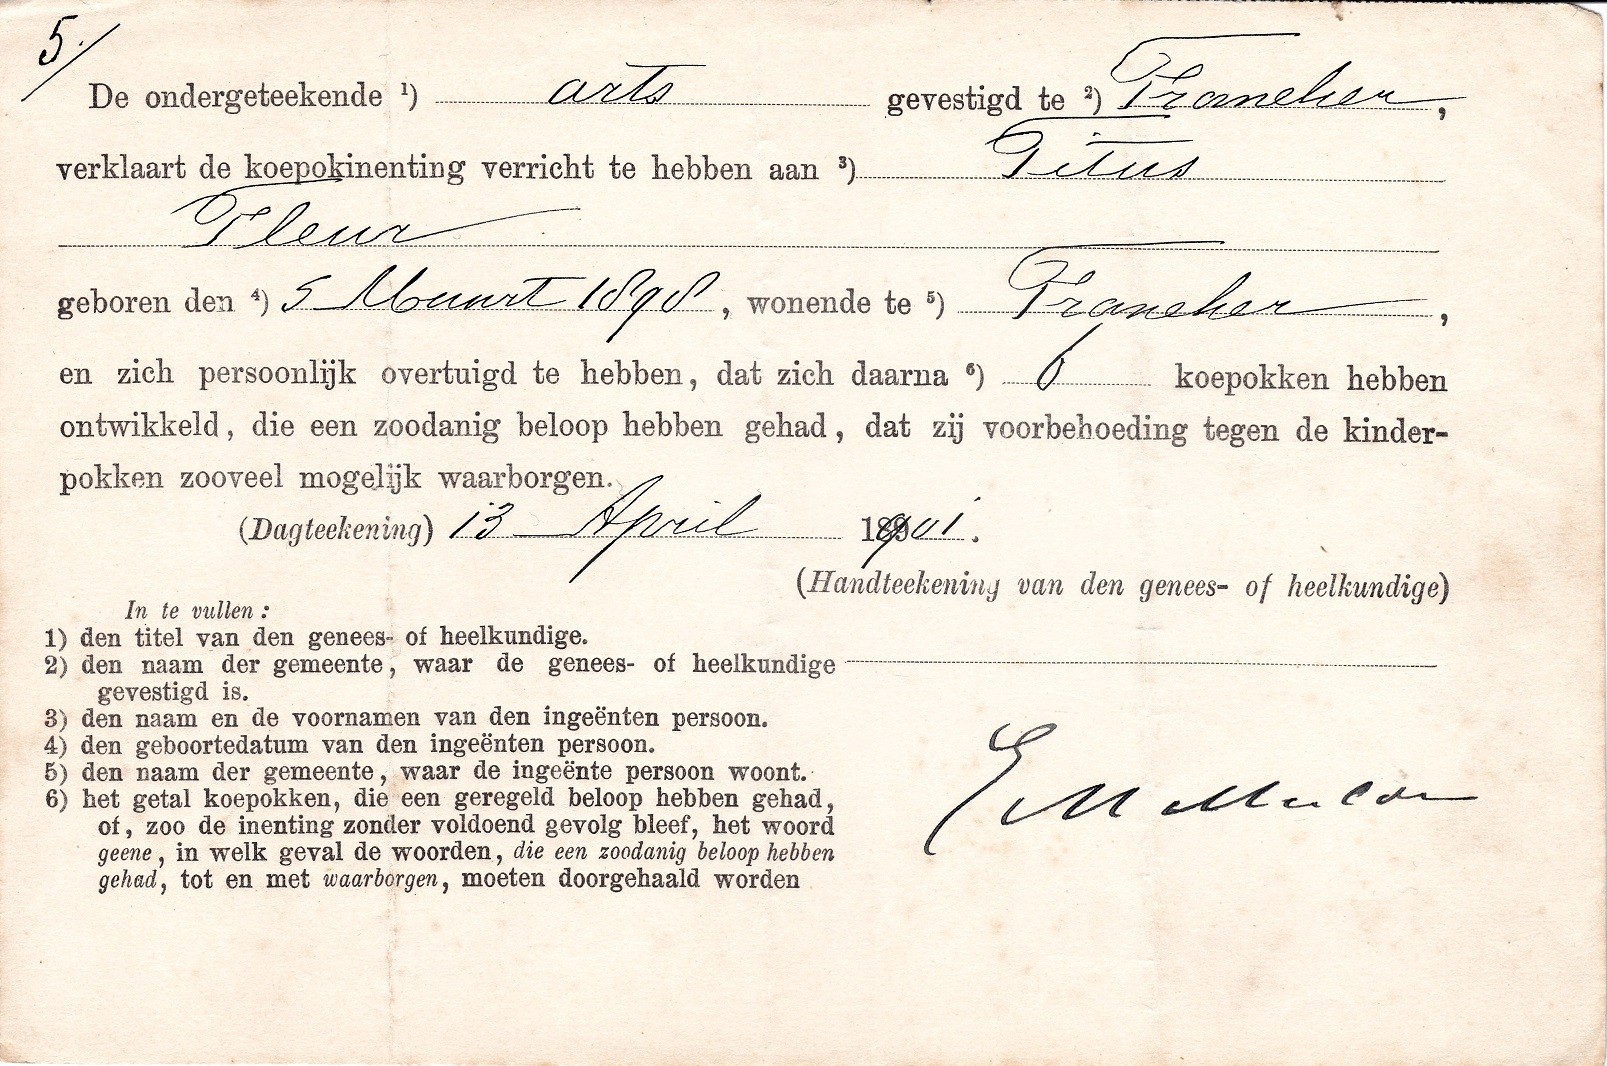 5.
De ondergeteekende ¹) arts gevestigd te ²) Franeker,
verklaart de koepokinenting verricht te hebben aan ³) Titus
Fleur
geboren den ⁴) 5 Maart 1898, wonende te ⁵) Franeker,
en zich persoonlijk overtuigd te hebben, dat zich daarna ⁶) 6 koepokken hebben
ontwikkeld, die een zoodanig beloop hebben gehad, dat zij voorbehoeding tegen de kinder-
pokken zooveel mogelijk waarborgen.
(Dagteekening) 13 April 1901.
(Handteekening van den genees- of heelkundige)
In te vullen:
1) den titel van den genees- of heelkundige.
2) den naam der gemeente, waar de genees- of heelkundige
gevestigd is.
3) den naam en de voornamen van den ingeënten persoon.
4) den geboortedatum van den ingeënten persoon.
5) den naam der gemeente, waar de ingeënte persoon woont.
6) het getal koepokken, die een geregeld beloop hebben gehad,
of, zoo de inenting zonder voldoend gevolg bleef, het woord
geene, in welk geval de woorden, die een zoodanig beloop hebben
gehad, tot en met waarborgen, moeten doorgehaald worden